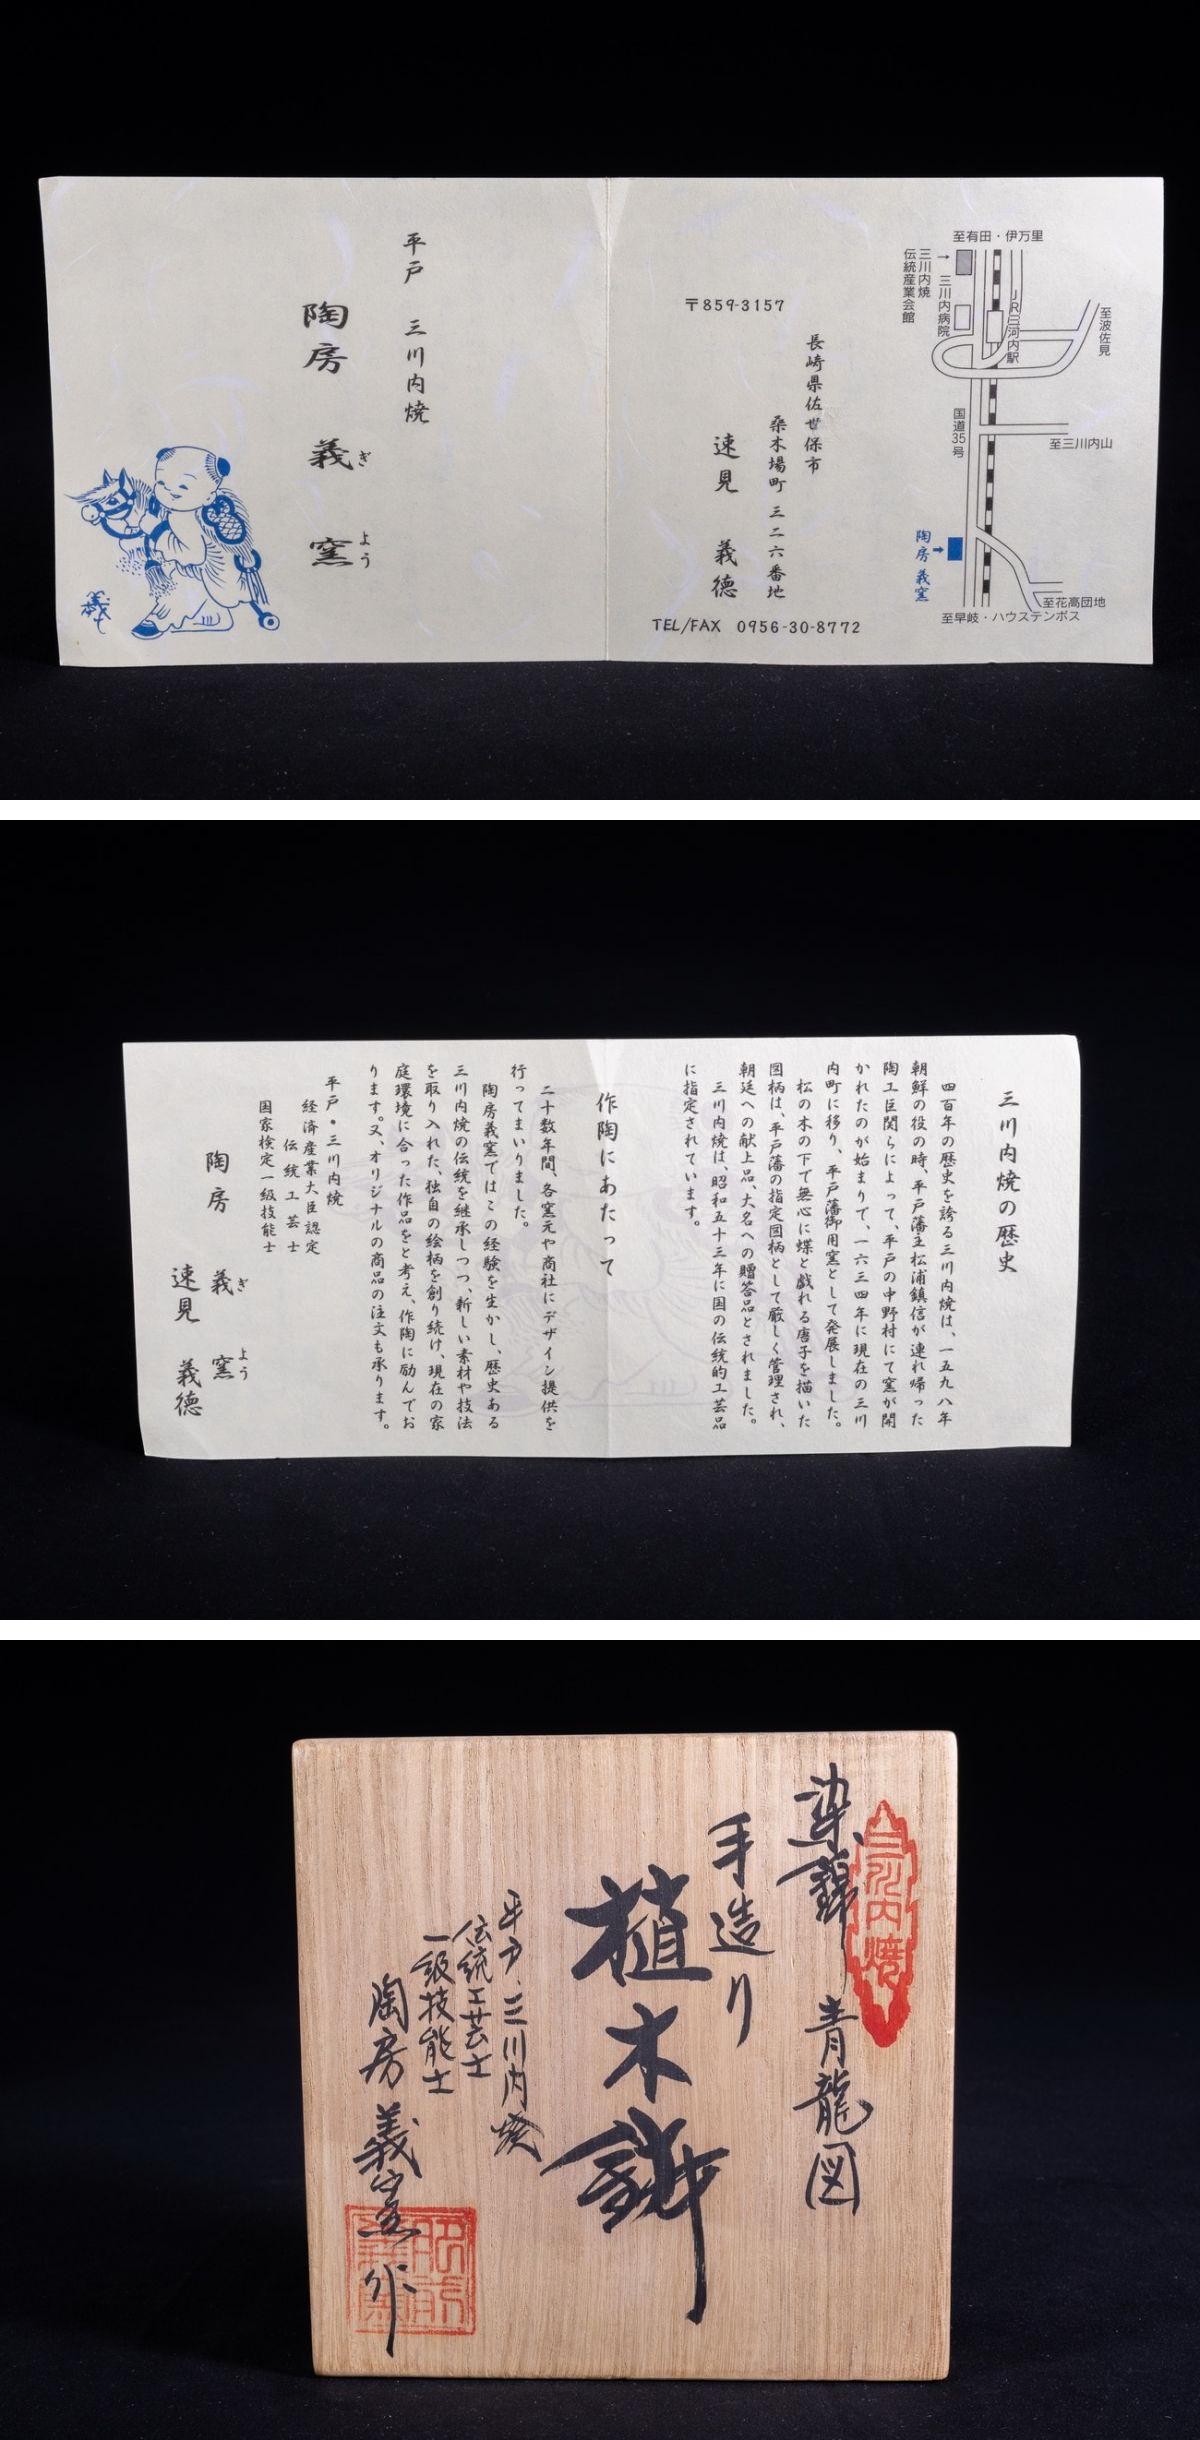 至有田・伊万里
三川内焼
伝統産業会館
→
三川内病院
JR三河内駅
至波佐見
国道35号
至三川内山
陶房義窯
→
至花高団地
至早岐・ハウステンボス
〒859-3157
長崎県佐世保市
桑木場町三二六番地
速見 義徳
TEL/FAX 0956-30-8772
平戸 三川内焼
陶房 義窯
ぎ よう
三川内焼の歴史
四百年の歴史を誇る三川内焼は、一五九八年
朝鮮の役の時、平戸藩主松浦鎮信が連れ帰った
陶工巨関らによって、平戸の中野村にて窯が開
かれたのが始まりで、一六三四年に現在の三川
内町に移り、平戸藩御用窯として発展しました。
松の木の下で無心に蝶と戯れる唐子を描いた
図柄は、平戸藩の指定図柄として厳しく管理され、
朝廷への献上品、大名への贈答品とされました。
三川内焼は、昭和五十三年に国の伝統的工芸品
に指定されています。
作陶にあたって
二十数年間、各窯元や商社にデザイン提供を
行ってまいりました。
陶房義窯ではこの経験を生かし、歴史ある
三川内焼の伝統を継承しつつ、新しい素材や技法
を取り入れた、独自の絵柄を創り続け、現在の家
庭環境に合った作品をと考え、作陶に励んでお
ります。又、オリジナルの商品の注文も承ります。
平戸・三川内焼
経済産業大臣認定
伝統工芸士
国家検定一級技能士
陶房 義窯
ぎ よう
速見 義徳
三川内焼
染錦 青龍図
手造り
植木鉢
平戸・三川内焼
伝統工芸士
一級技能士
陶房義窯作